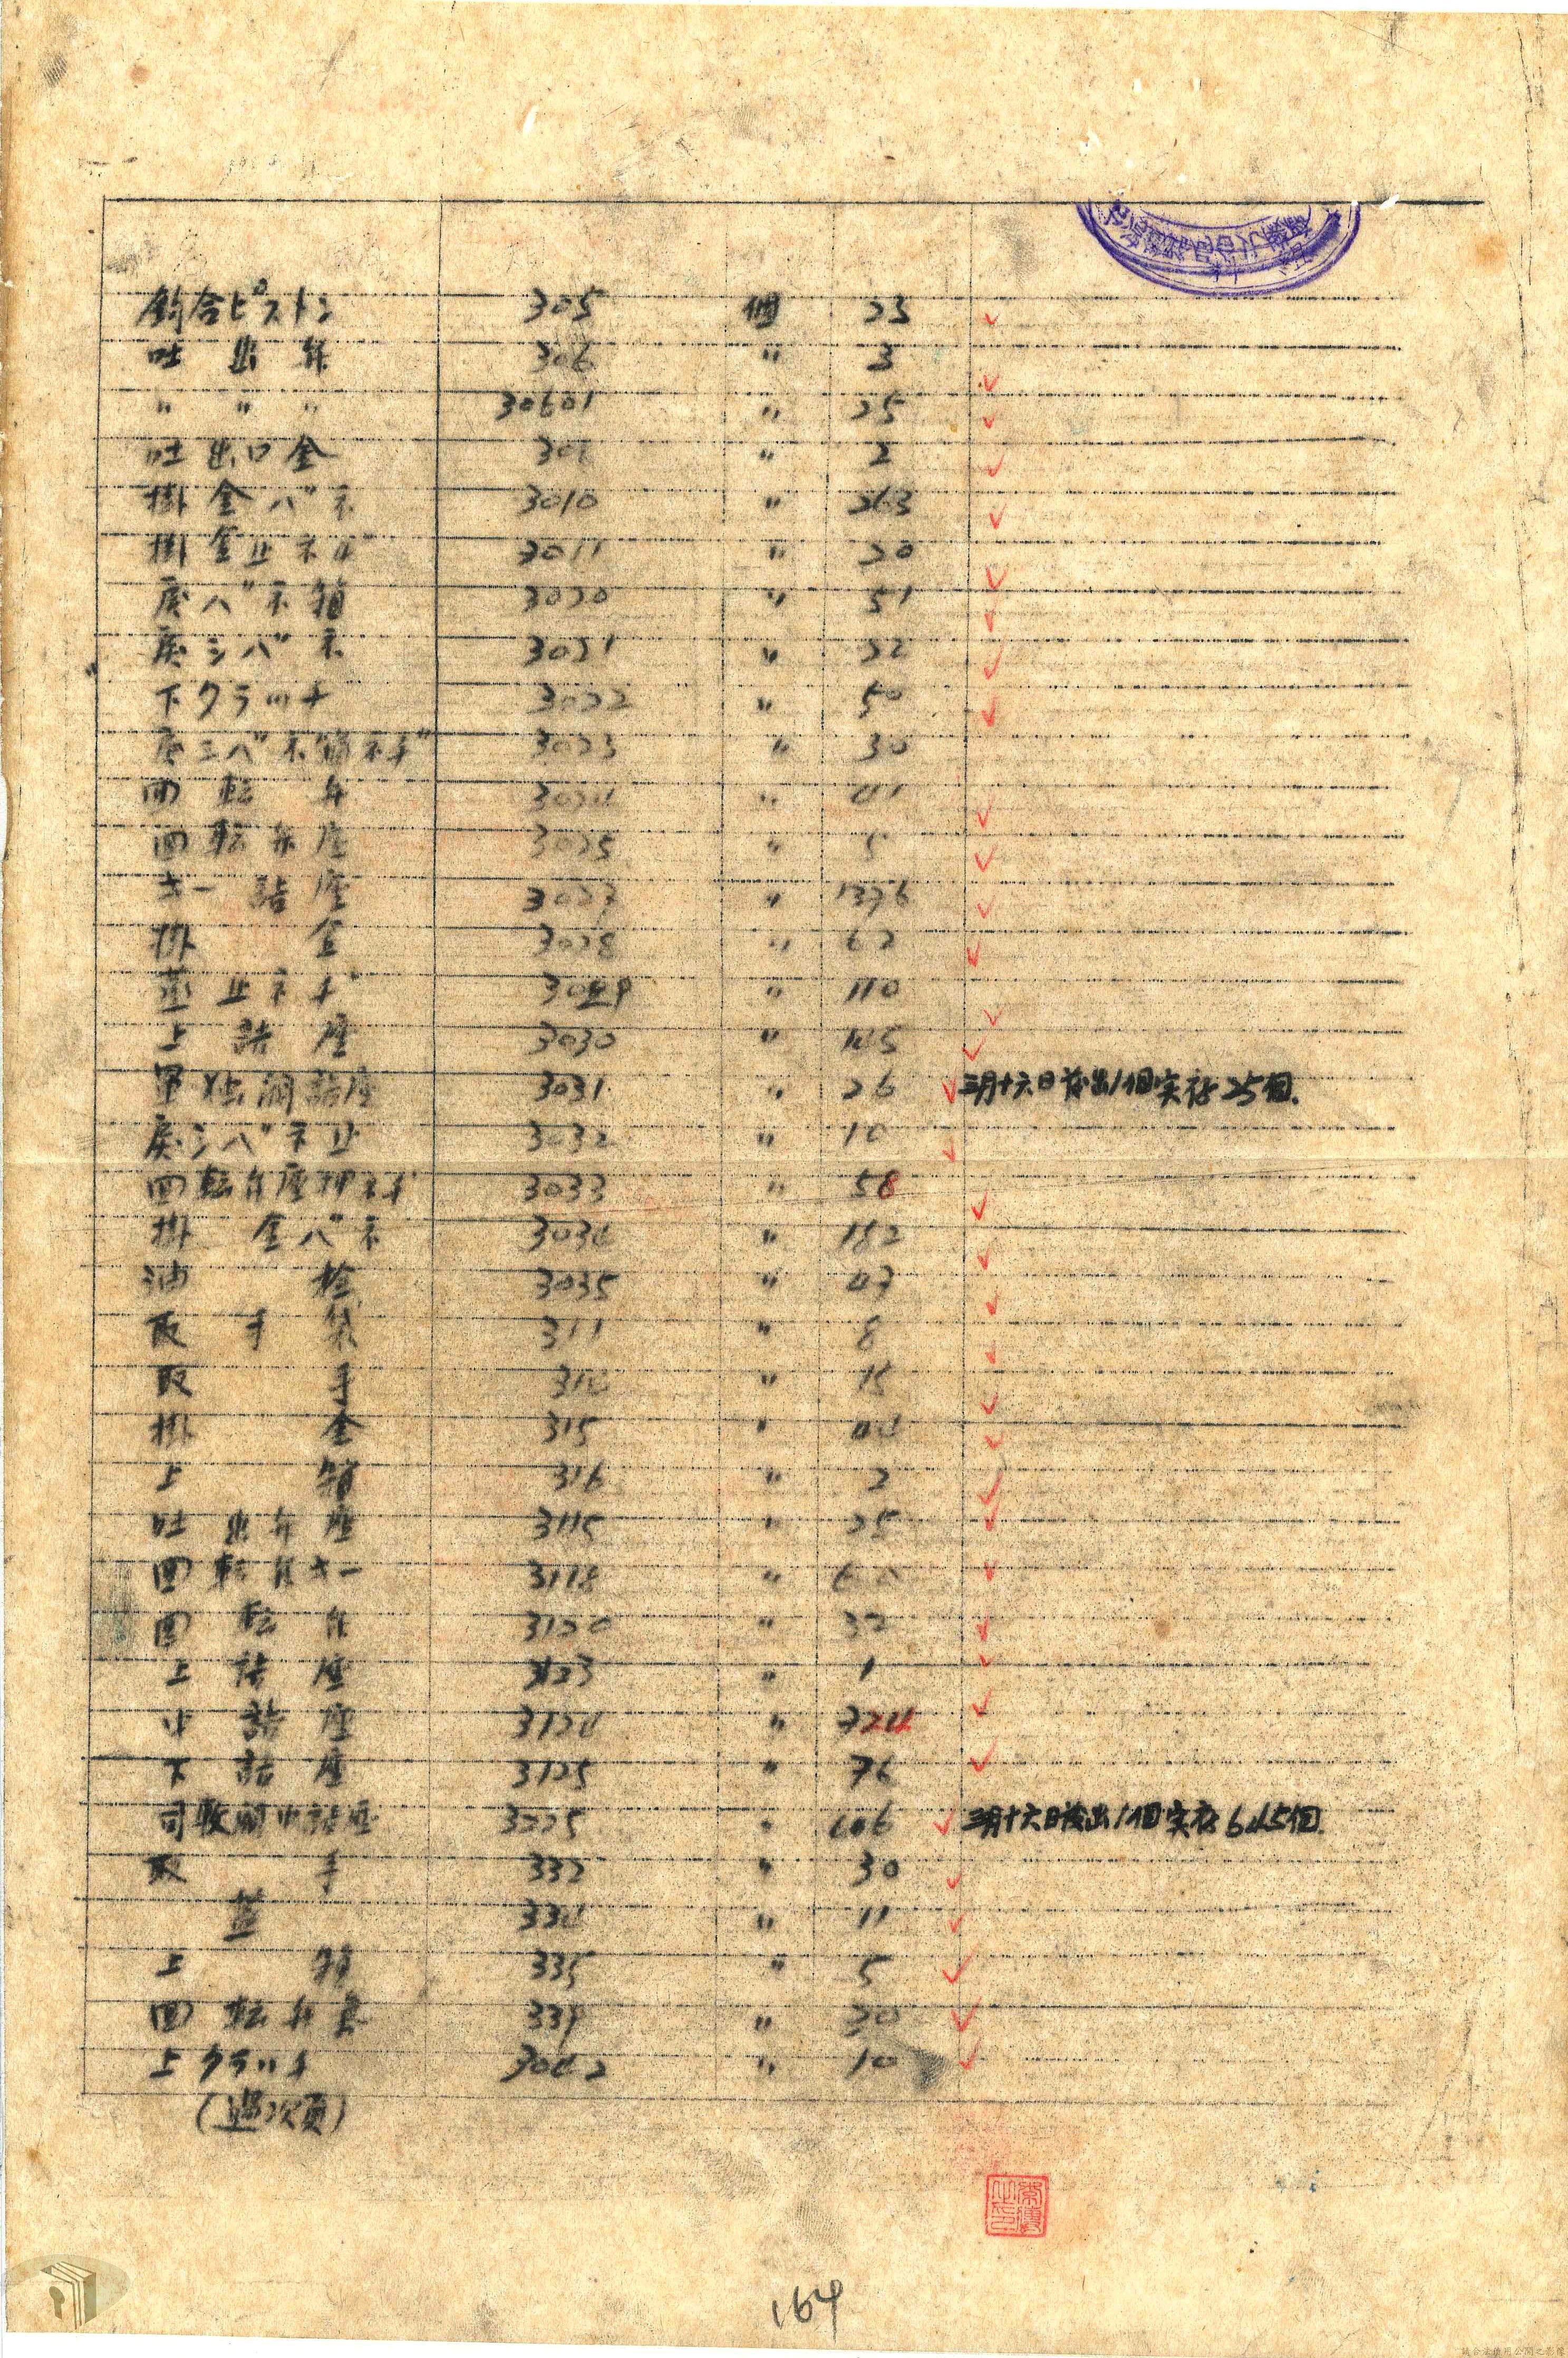 釣合ピストン 305 個 23
吐出弁 306 〃 3
〃 〃 〃 30601 〃 25
吐出口金 〃 2
掛金バネ 3010 〃 263
掛金止ネヂ 3011 〃 20
戻バネ箱 3020 〃 51
戻シバネ 3021 〃 22
下クラッチ 3022 〃 50
戻シバネ箱ネヂ 3023 〃 30
回転弁 3024 〃 41
回転弁座 3025 〃 5
キー詰座 〃 1376
掛金 3028 〃 62
蓋止ネヂ 3029 〃 110
上詰座 3030 〃
単独調詰座 3031 〃 26 三月十六日發出1個実存25個.
戻シバネ止 3032 〃 10
回転弁座押ネヂ 3033 〃 58
掛金バネ 3034 〃 182
油栓 3035 〃 47
取手袋 311 〃 8
取手 〃 15
掛金 315 〃 44
上箱 316 〃 2
吐出弁座 3115 〃 25
回転弁キー 3118 〃
回転弁 3120 〃 32
上詰座 3123 〃 1
止詰座 3124 〃 724
下詰座 3125 〃 76
〃 三月十六日發出1個実存645個.
取手 332 〃 30
蓋 334 〃 11
上箱 335 〃 5
回転弁 339 〃 30
上クラッチ 3042 〃 10
(過次頁)
164